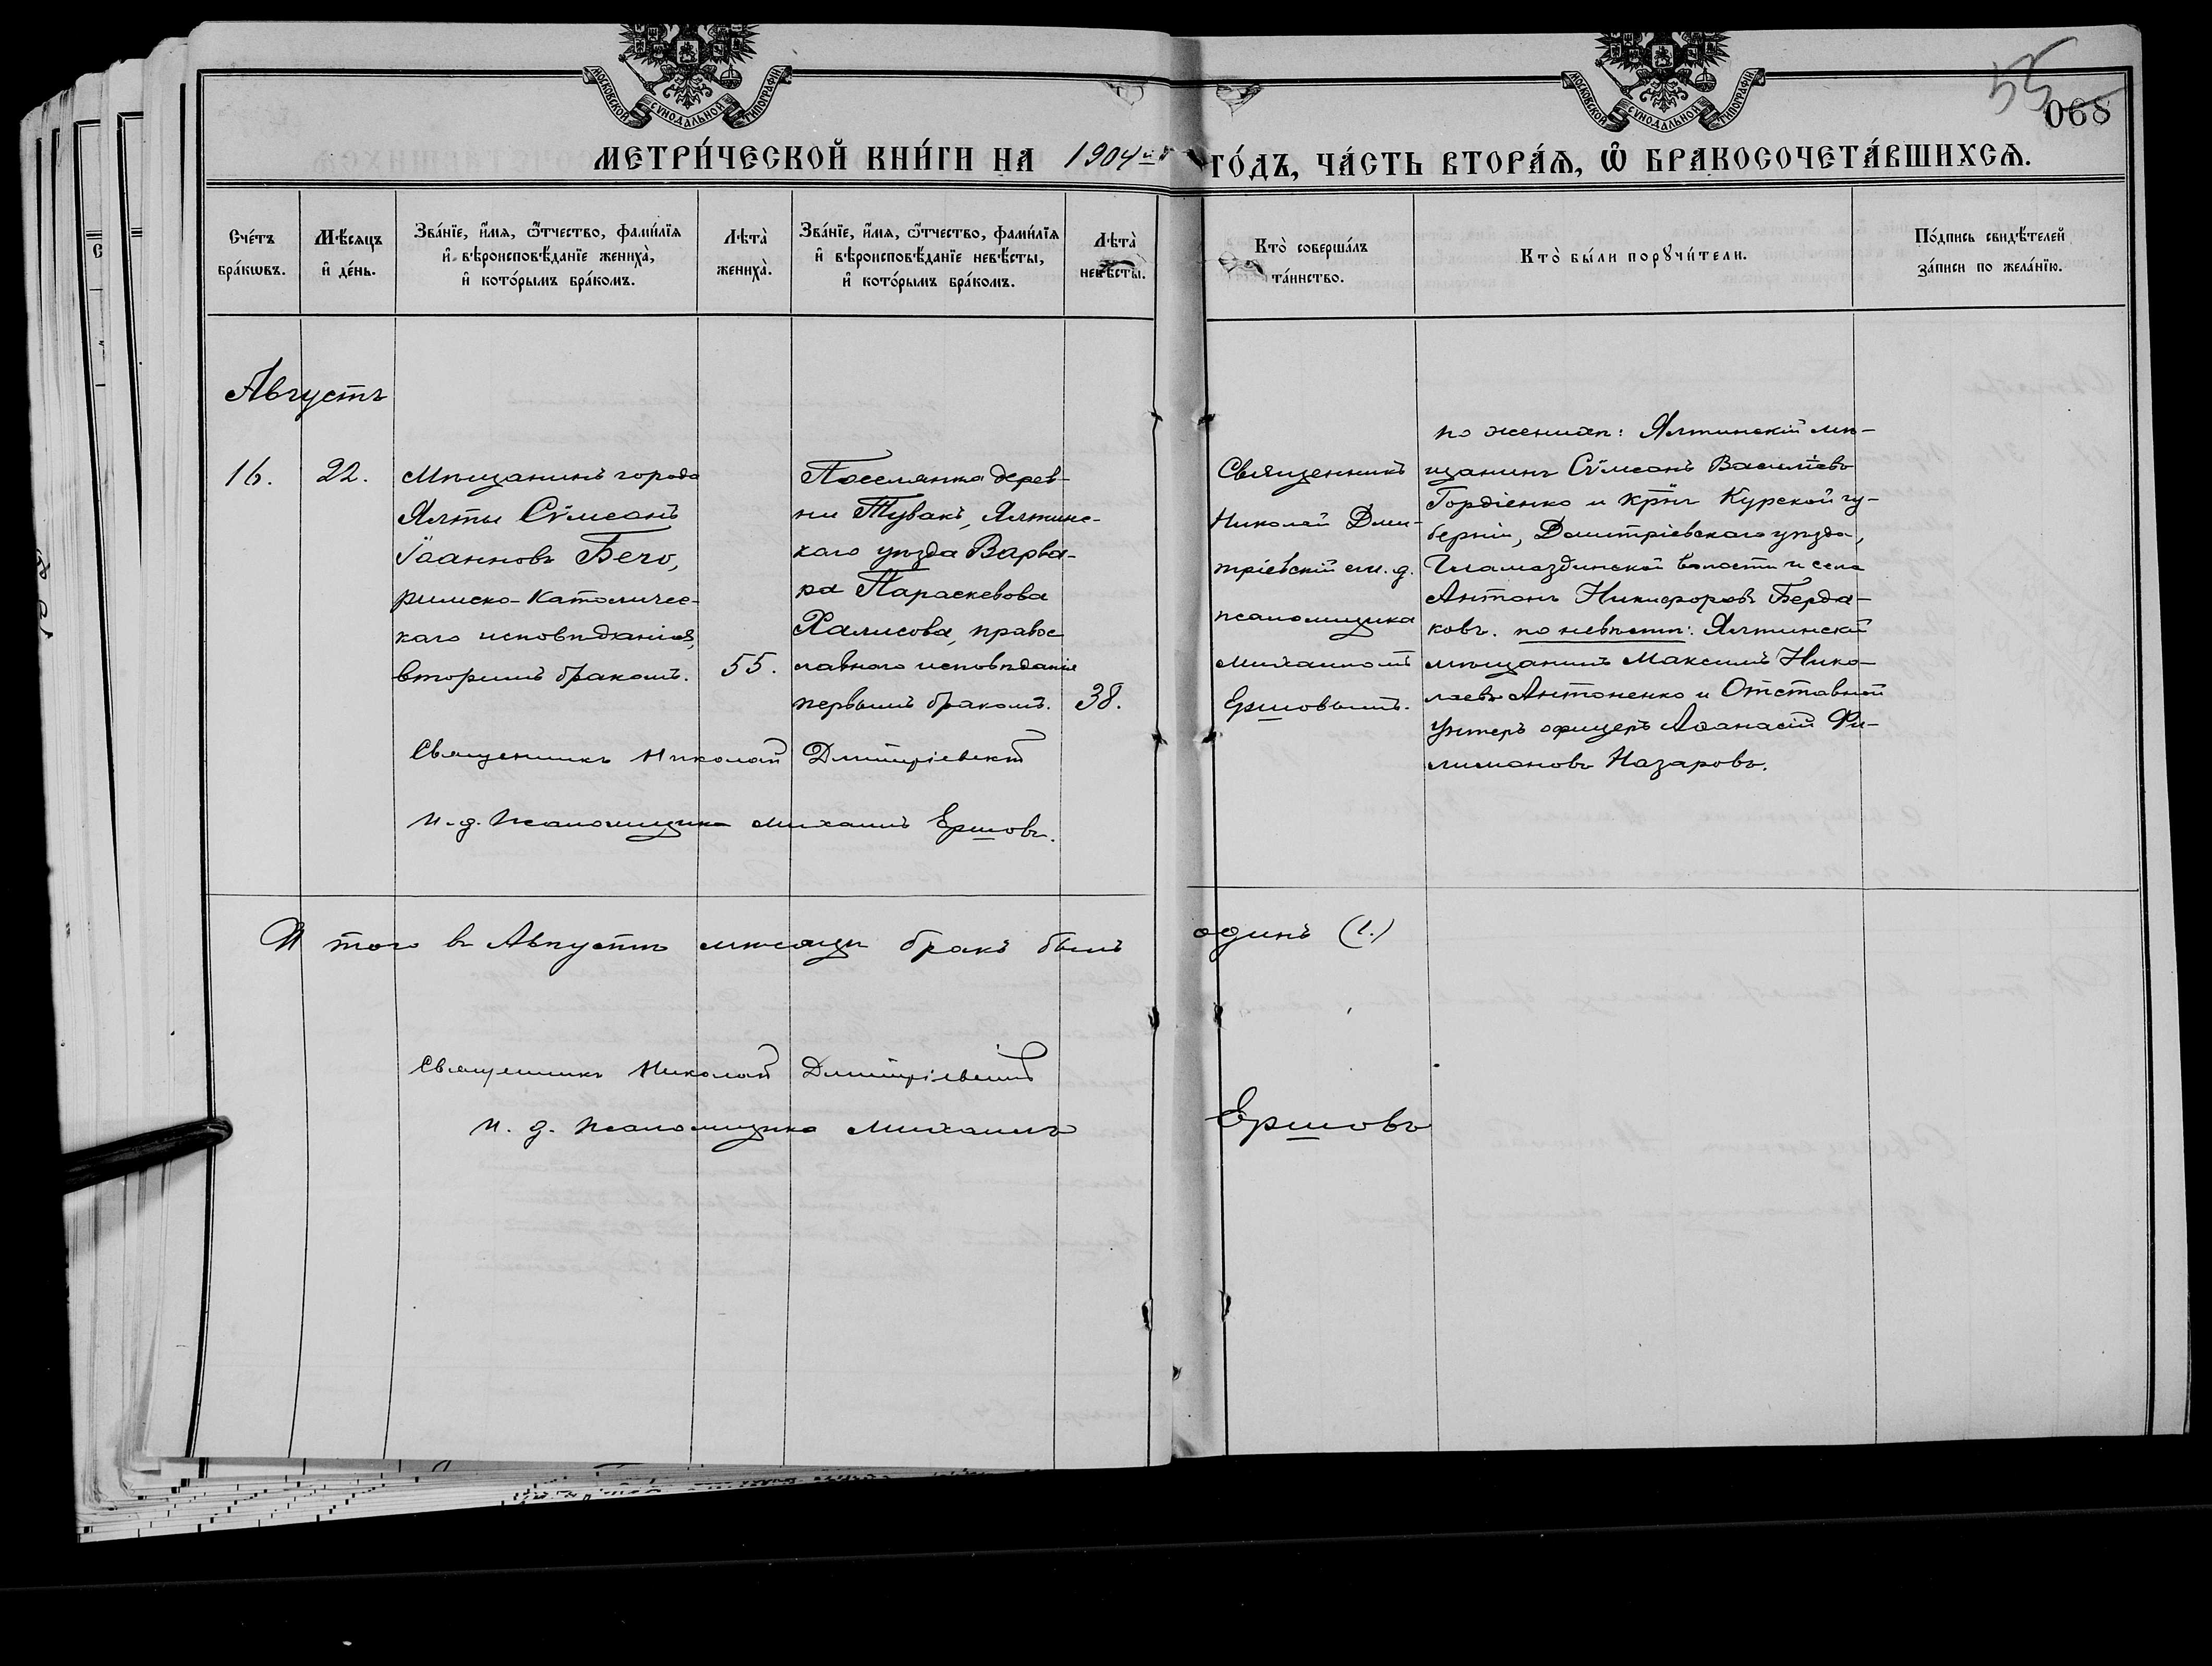 МОСКОВСКОЙ СѴНОДАЛЬНОЙ ТИПОГРАФІИ
МОСКОВСКОЙ СѴНОДАЛЬНОЙ ТИПОГРАФІИ
55
068
МЕТРИ́ЧЕСКОЙ КНИ́ГИ НА 1904 ГО́ДЪ, ЧА́СТЬ ВТОРА́Ѧ, Ѿ БРАКОСОЧЕТА́ВШИХСѦ.
Сче́тъ бра́кѡвъ.
Мѣ́сяцъ и҆ де́нь.
Зва́нїе, и҆́мѧ, ѻ҆́тчество, фами́лїѧ
и҆ вѣроисповѣ́данїе жениха̀,
и҆ кото́рымъ бра́комъ.
Лѣта̀ жениха̀.
Зва́нїе, и҆́мѧ, ѻ҆́тчество, фами́лїѧ
и҆ вѣроисповѣ́данїе невѣ́сты,
и҆ кото́рымъ бра́комъ.
Лѣта̀ невѣ́сты.
Кто̀ соверша́лъ
та́инство.
Кто̀ бы́ли порꙋчи́тели.
По́дпись свидѣ́телей
за́писи по жела́нїю.
Августъ
16.
22.
Мѣщанинъ города
Ялты Сѵмеонъ
Іоанновъ Бего,
римско-католичес-
каго исповѣданія,
вторымъ бракомъ.
55.
Поселянка дерев-
ни Тувакъ, Ялтинс-
каго уѣзда Варва-
ра Параскевова
Халисова, правос-
лавнаго исповѣданія
первымъ бракомъ.
38.
Священникъ
Николай Дми-
тріевскій съ и. д.
псаломщика
Михаиломъ
Ершовымъ.
по женихѣ: Ялтинскій мѣ-
щанинъ Сѵмеонъ Васильевъ
Гордіенко и крнъ Курской гу-
берніи, Дмитріевскаго уѣзда,
волости и села
Антонъ Никифоровъ Берда-
ковъ. по невѣстѣ: Ялтинскій
мѣщанинъ Максимъ Нико-
лаевъ Антоненко и Отставной
Унтеръ офицеръ Аѳанасій Фи-
лимоновъ Назаровъ.
Священникъ Николай Дмитріевскій
И. д. псаломщика Михаилъ Ершовъ.
И того въ Августѣ мѣсяцѣ бракъ былъ одинъ (1.)
Священникъ Николай Дмитріевскій
И. д. псаломщика Михаилъ Ершовъ